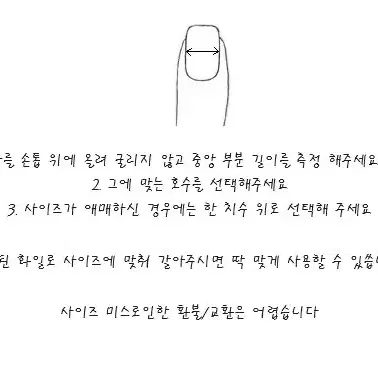 를 손톱 위에 올려 굴리지 않고 중앙 부분 길이를 측정 해주세요
2. 그에 맞는 호수를 선택해주세요
3. 사이즈가 애매하신 경우에는 한 치수 위로 선택해 주세요
된 화일로 사이즈에 맞춰 갈아주시면 딱 맞게 사용할 수 있습니
사이즈 미스로인한 환불/교환은 어렵습니다